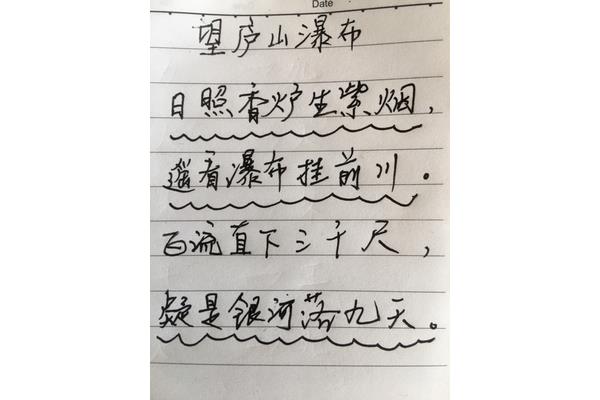 Date
望庐山瀑布
日照香炉生紫烟，
遥看瀑布挂前川。
百流直下三千尺，
疑是银河落九天。